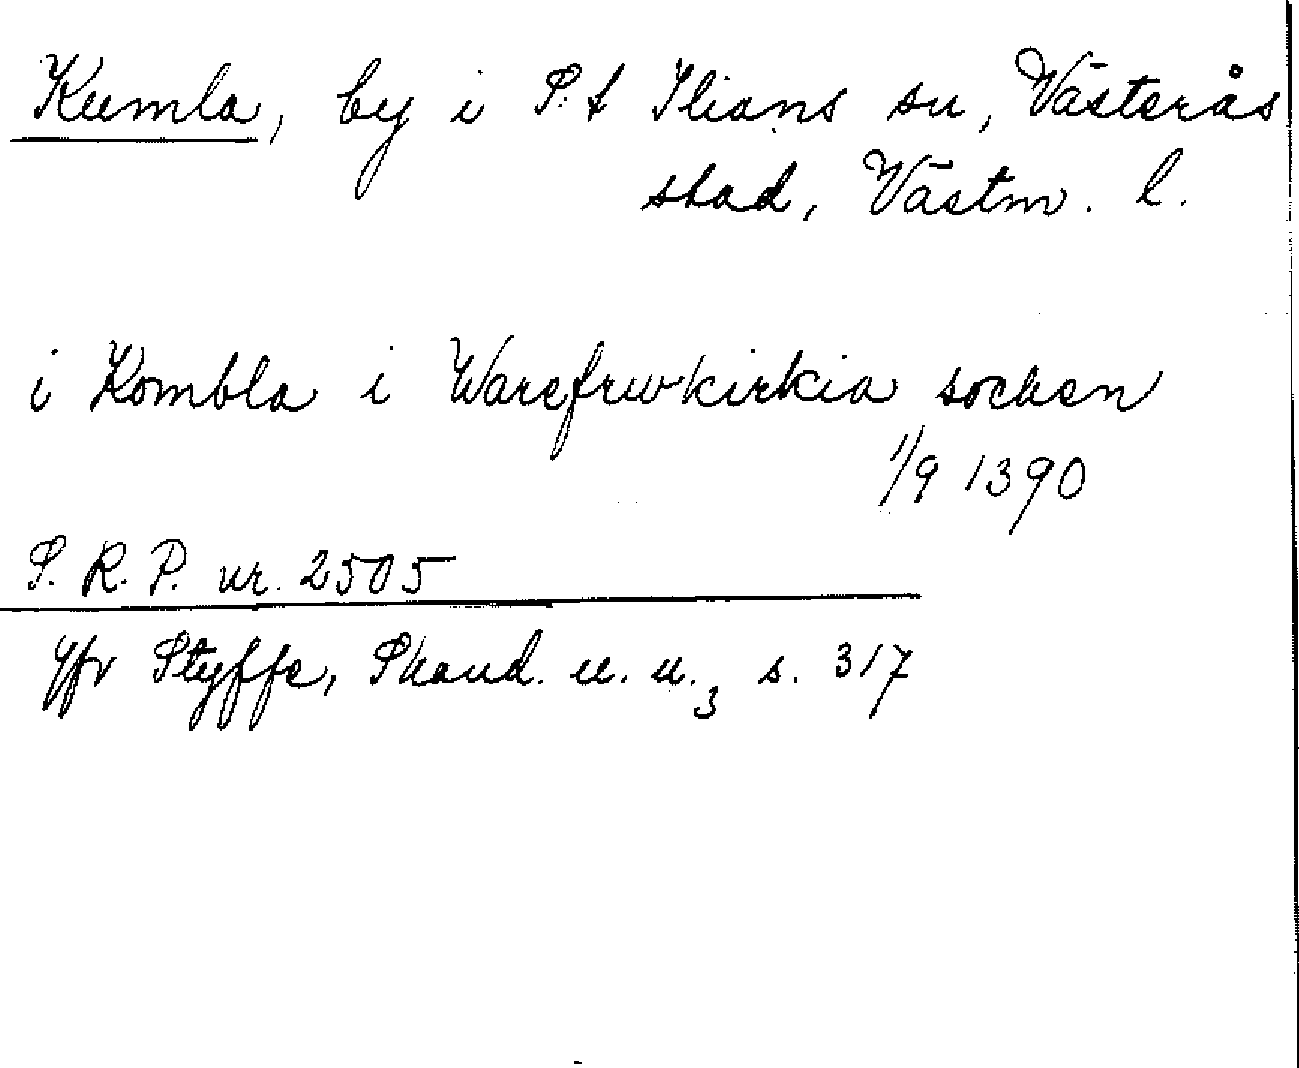 Kumla, by i S:t Ilians sn, Västerås
stad, Västm. l.
i Kombla i Warefrwkirkia socken
1/9 1390
S. R. P. nr. 2505
Jfr Styffe, Skand. u. u.3 s. 317